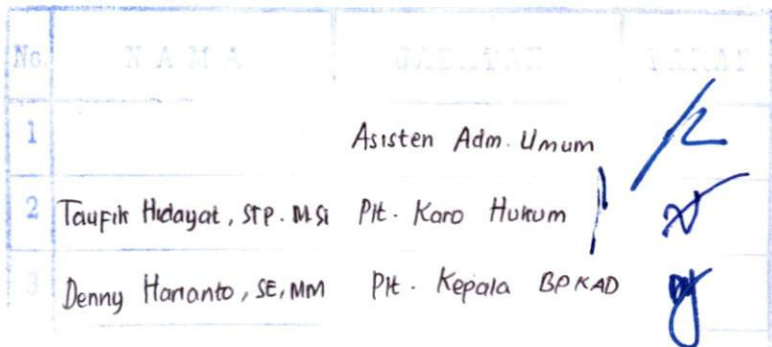 No. NAMA JABATAN PARAF
1 Asisten Adm. Umum
2 Taufik Hidayat, STP. MSi Plt. Karo Hukum
3 Denny Harianto, SE, MM Plt. Kepala BPKAD